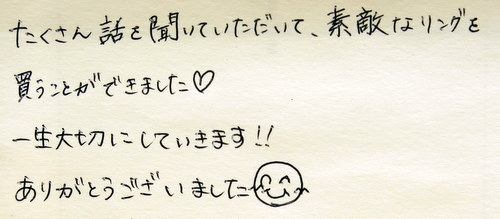 たくさん話を聞いていただいて、素敵なリングを
買うことができました♡
一生大切にしていきます!!
ありがとうございました